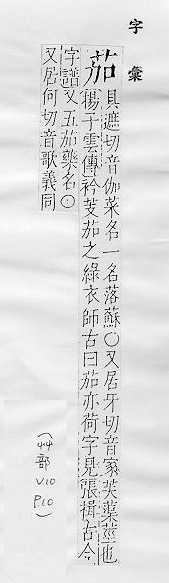 字彙
茄 具遮切音伽菜名一名落蘇○又居牙切音家芙蕖莖也
揚子雲傳衿芰茄之綠衣師古曰茄亦荷字見張揖古今
字譜又五茄藥名○
又居何切音歌義同
(艸部
V.10
P.10)